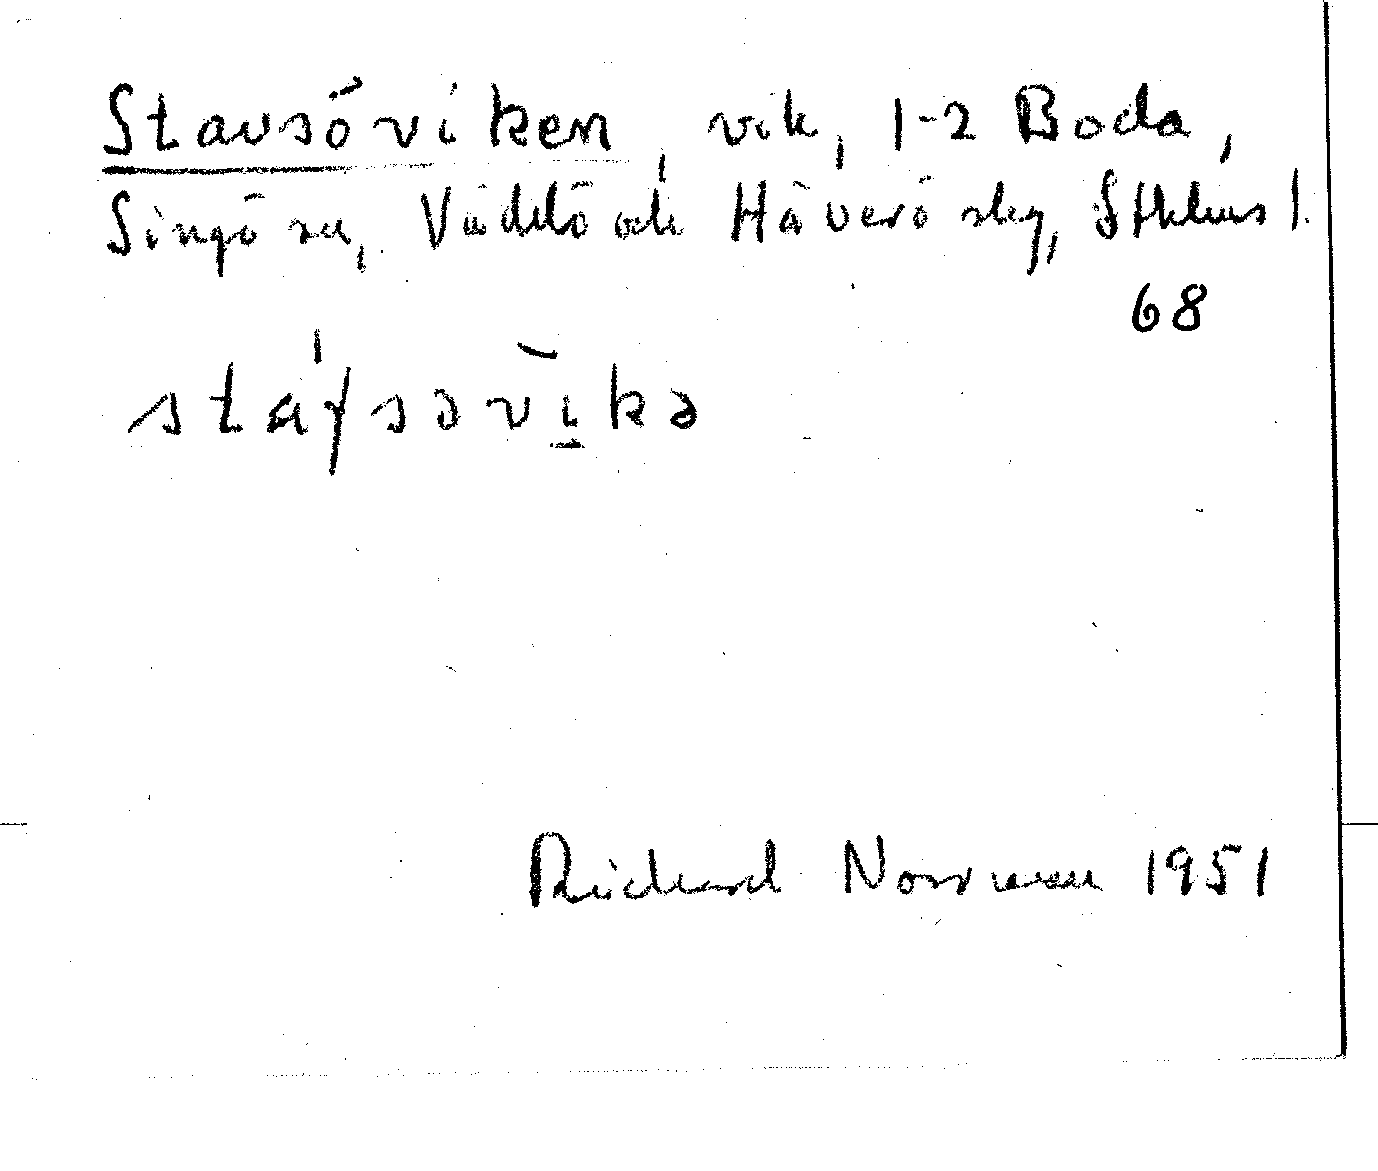 Stavsöviken, vik, 1-2 Boda,
Singö sn, Väddö och Häverö skg, Sthlms l.
68
stáfsəvìkə
Rickard Norrman 1951